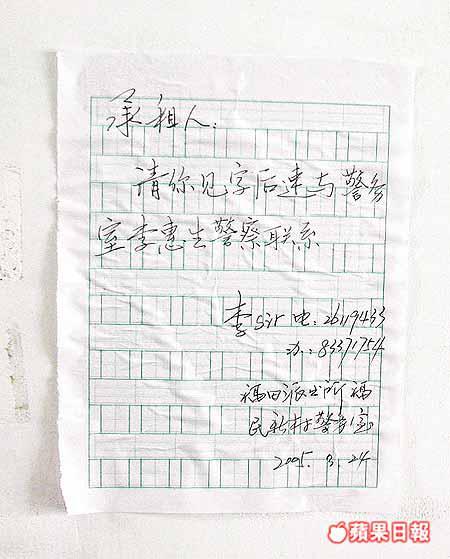 承租人:
请你见字后速与警务
室李惠生警察联系
李sir 电:26119433
办:83371754
福田派出所福
民新村警务室
2005.3.24
蘋果日報